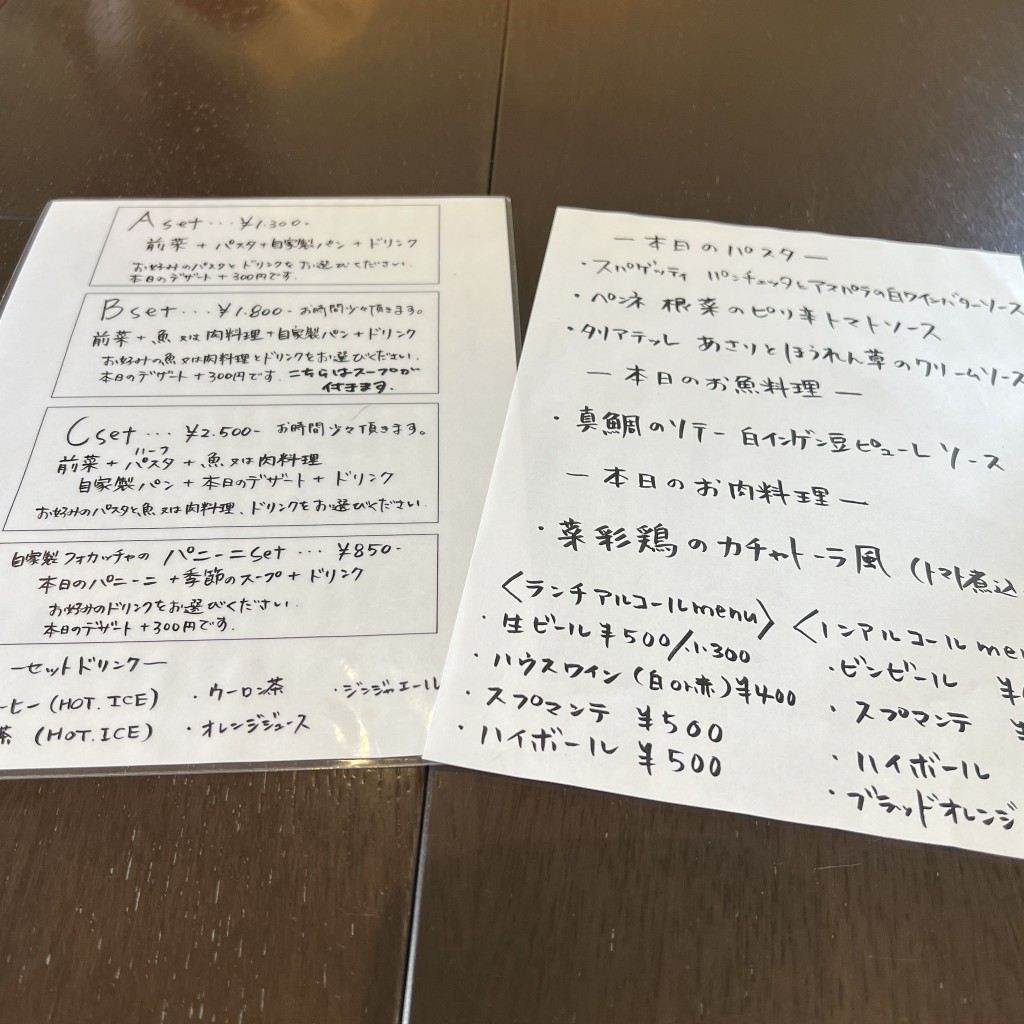 A set ... ¥1.300-
前菜 + パスタ + 自家製パン + ドリンク
お好みのパスタとドリンクをお選びください.
本日のデザート +300円です.
B set ... ¥1.800- お時間少々頂きます。
前菜 + 魚又は肉料理 + 自家製パン + ドリンク
お好みの魚又は肉料理とドリンクをお選びください.
本日のデザート +300円です. こちらはスープが
付きます.
C set ... ¥2.500- お時間少々頂きます。
ハーフ
前菜 + パスタ + 魚又は肉料理
自家製パン + 本日のデザート + ドリンク
お好みのパスタと魚又は肉料理、ドリンクをお選びください.
自家製フォカッチャの パニーニset ... ¥850-
本日のパニーニ + 季節のスープ + ドリンク
お好みのドリンクをお選びください.
本日のデザート +300円です.
ーセットドリンクー
ーヒー (HOT. ICE) ・ウーロン茶 ・ジンジャエール
茶 (HOT. ICE) ・オレンジジュース
ー本日のパスターー
・スパゲッティ パンチェッタとアスパラの白ワインバターソース
・ペンネ 根菜のピリ辛トマトソース
・タリアテッレ あさりとほうれん草のクリームソース
ー本日のお魚料理ー
・真鯛のソテー 白インゲン豆ピューレソース
ー本日のお肉料理ー
・菜彩鶏のカチャトーラ風 (トマト煮込
〈ランチアルコールmenu〉
・生ビール ¥500/小300
・ハウスワイン (白or赤) ¥400
・スプマンテ ¥500
・ハイボール ¥500
〈ノンアルコールme
・ビンビール ¥
・スプマンテ ¥
・ハイボール
・ブラッドオレンジ